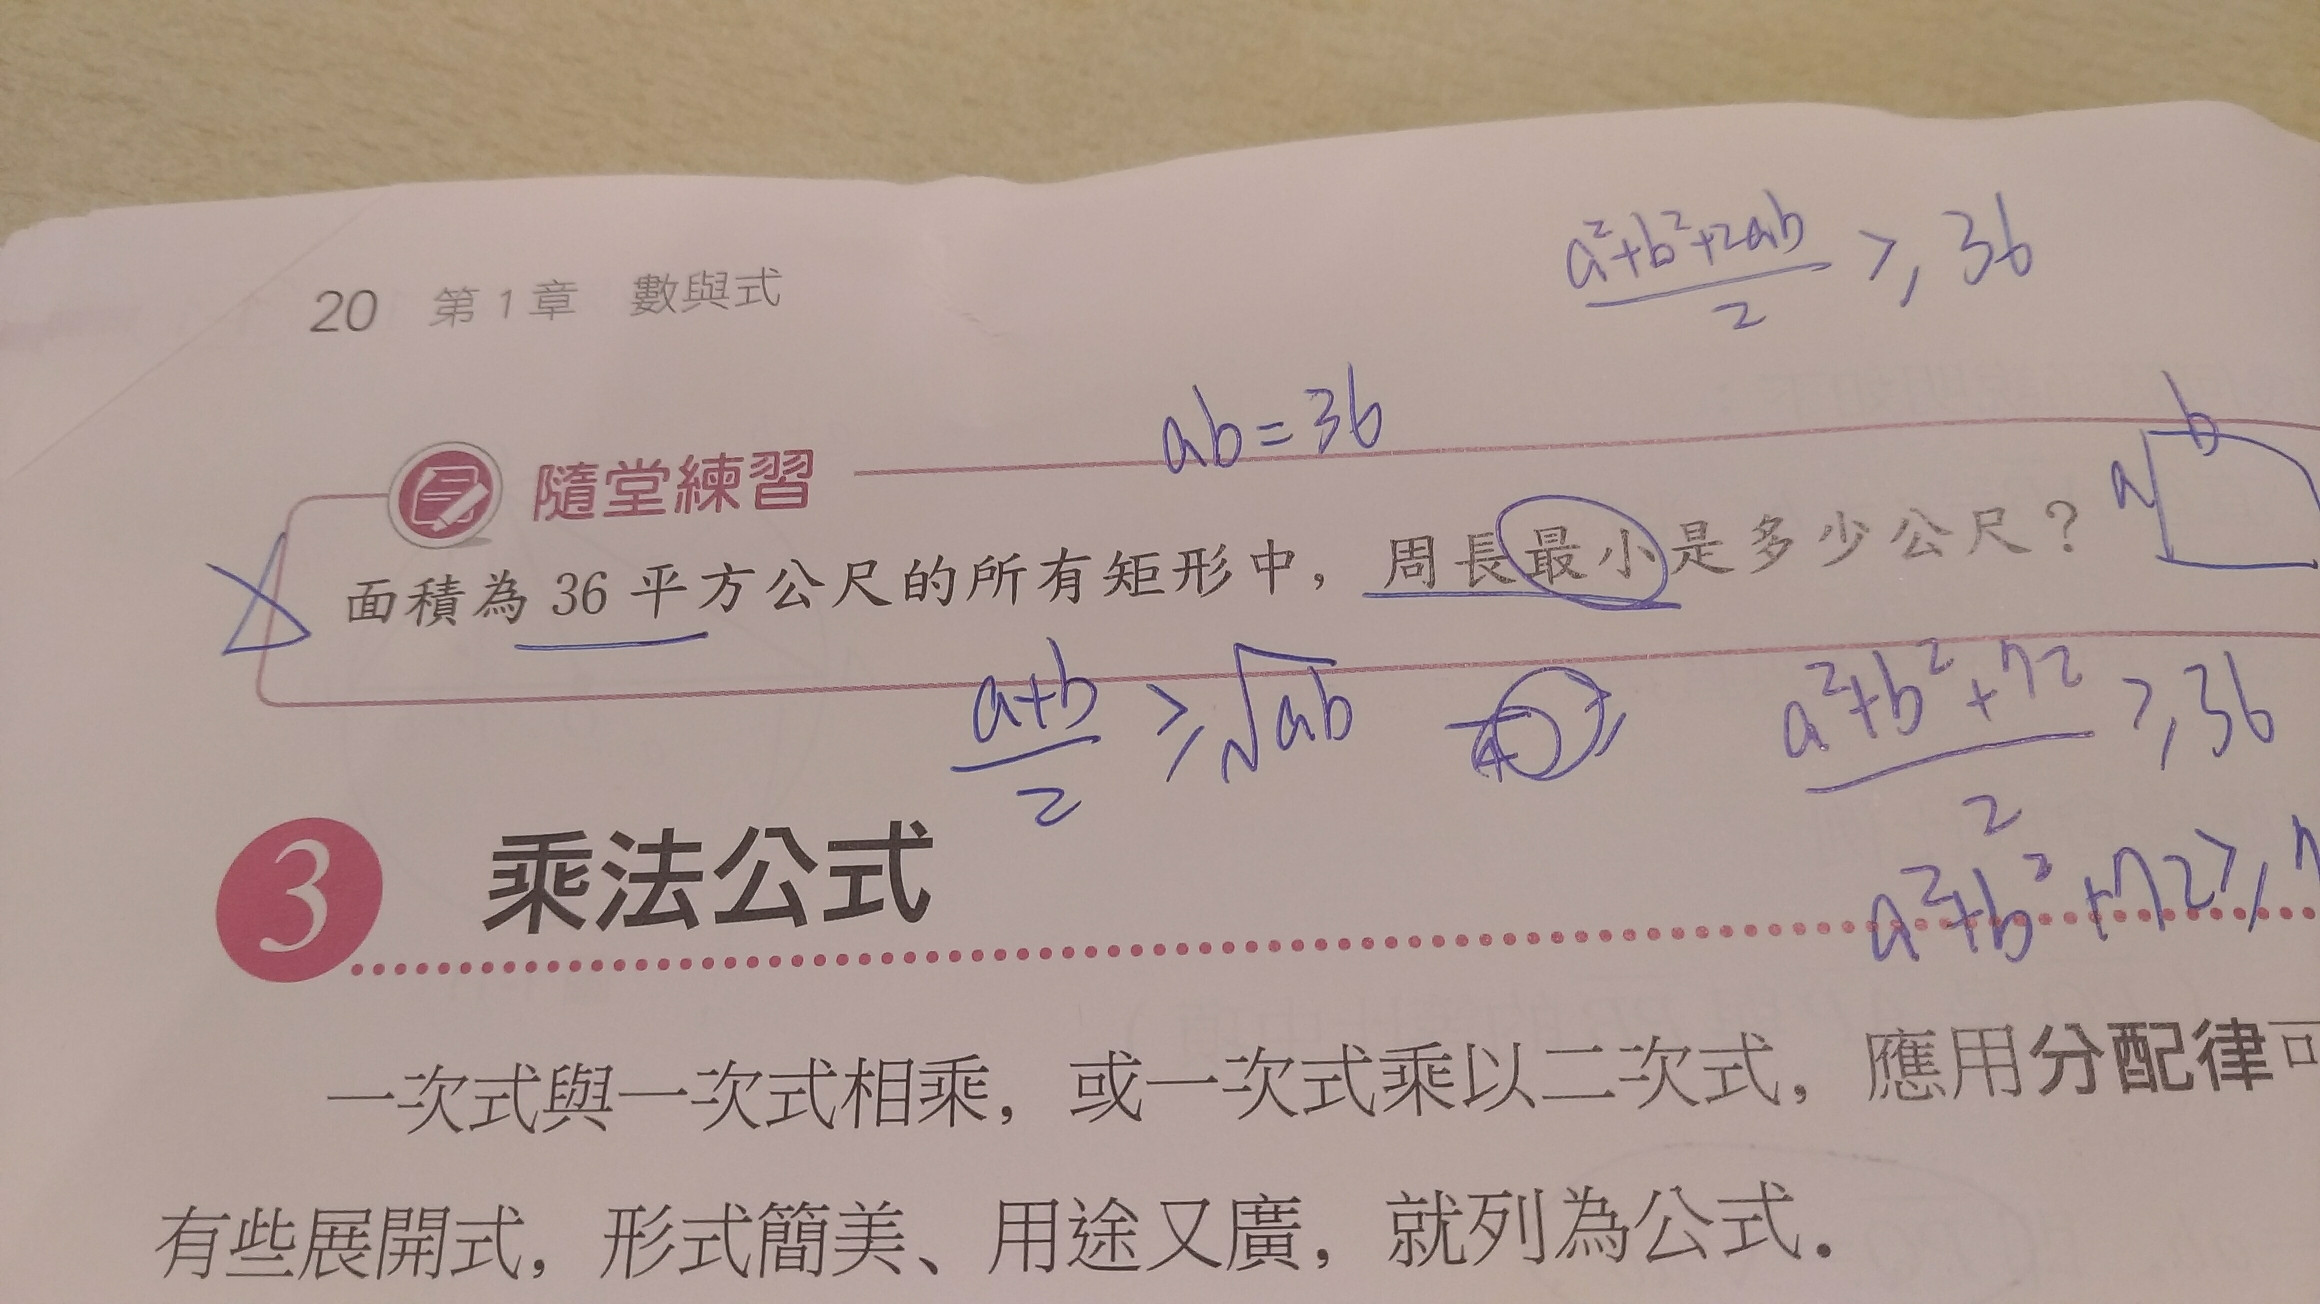 a²+b²+2ab / 2 ≥ 36
20 第1章 數與式
ab=36
b
a
隨堂練習
面積為 36 平方公尺的所有矩形中，周長最小是多少公尺？
a+b / 2 ≥ √ab
a²+b²+72 / 2 ≥ 36
a²+b²+72 ≥ 7
3 乘法公式
一次式與一次式相乘，或一次式乘以二次式，應用分配律可
有些展開式，形式簡美、用途又廣，就列為公式．